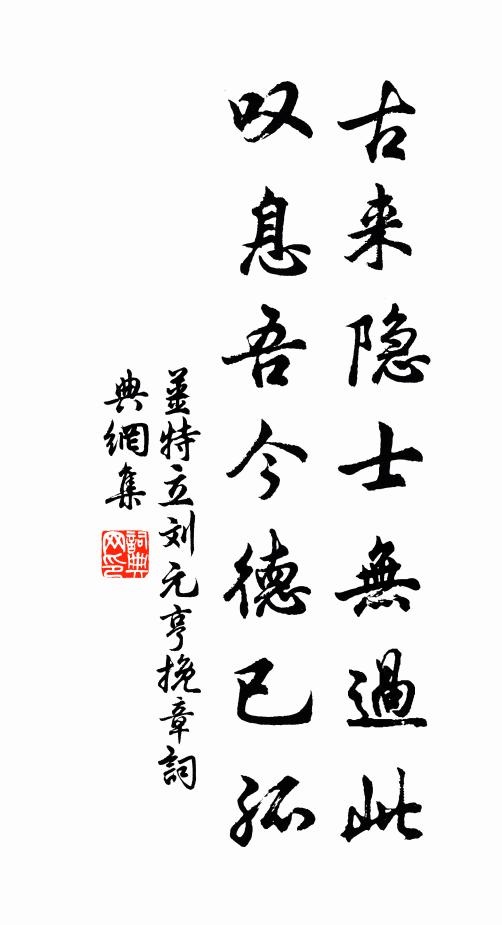 古来隐士無過此
叹息吾今德已孤
姜特立刘元亨挽章詞
典網集
詞典网印